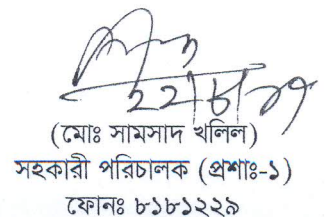 (মোঃ সামসাদ খলিল)
সহকারী পরিচালক (প্রশাঃ-১)
ফোনঃ ৮১৮১২২৯